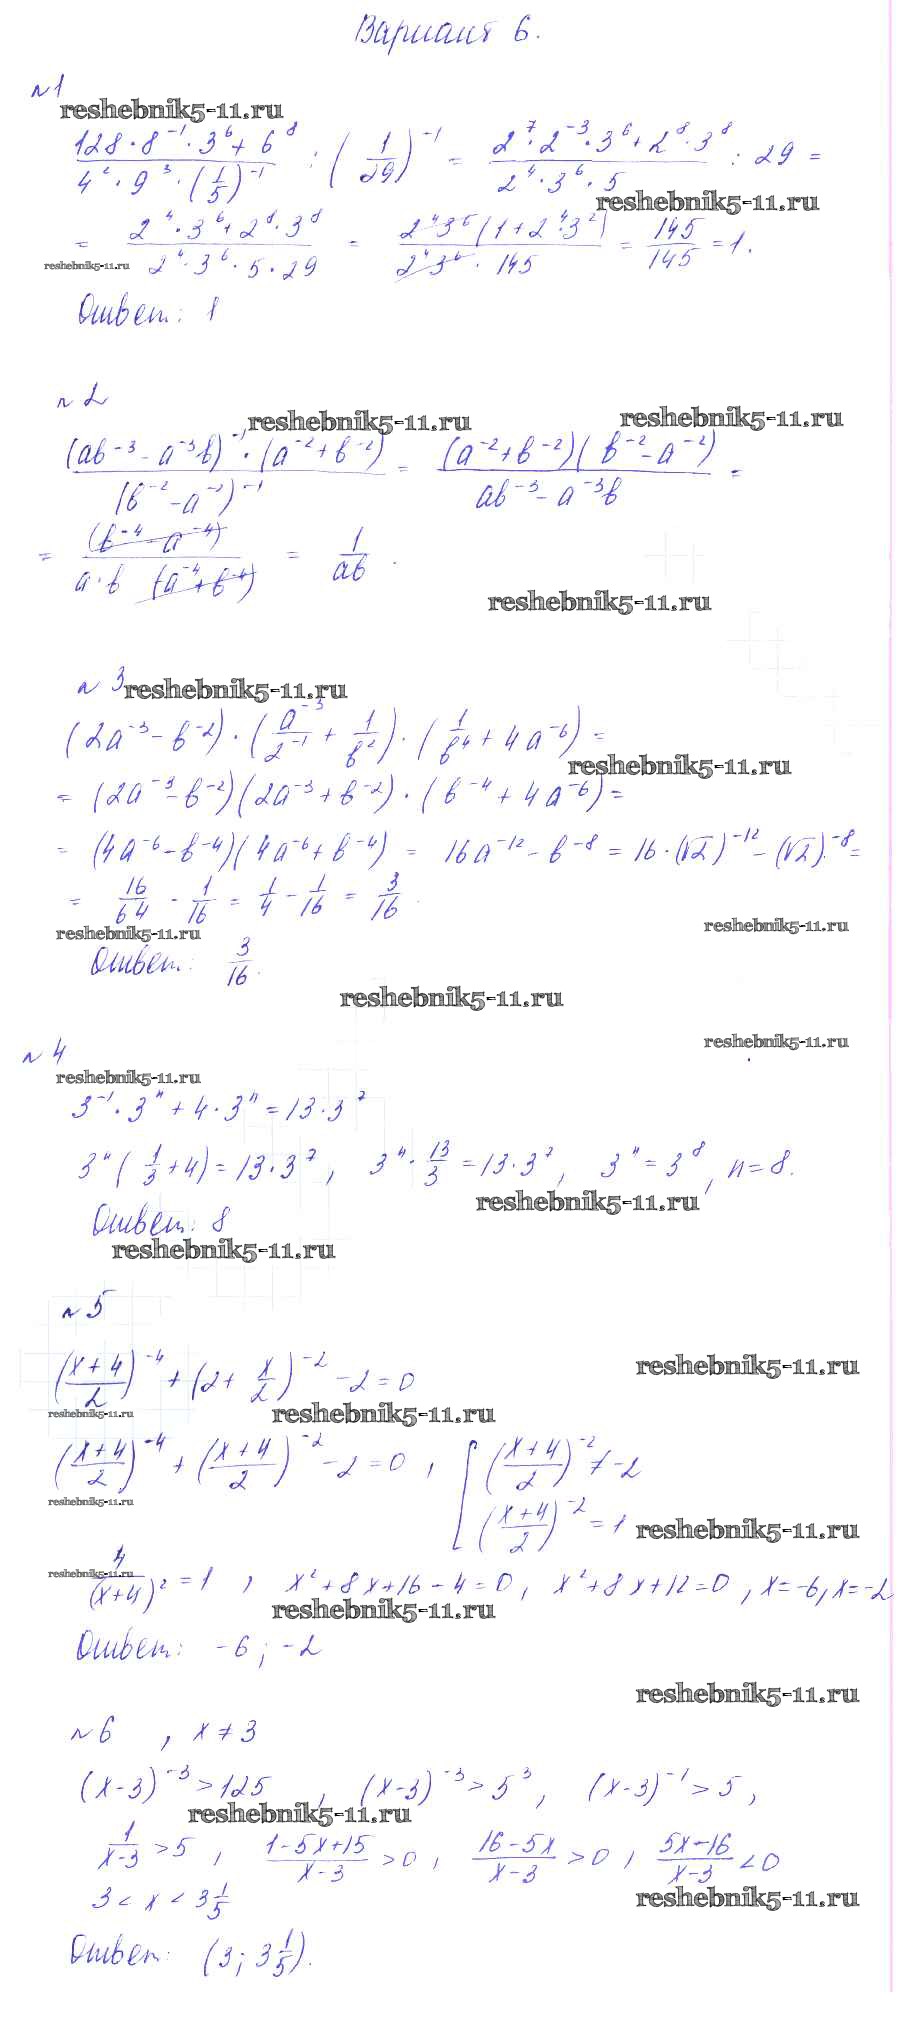 Вариант 6.
№1
reshebnik5-11.ru
(128·8⁻¹·3⁶+6⁸)/(4²·9³·(1/5)⁻¹) : (1/29)⁻¹ = (2⁷·2⁻³·3⁶+2⁸·3⁸)/(2⁴·3⁶·5) : 29 =
reshebnik5-11.ru
= (2⁴·3⁶+2⁸·3⁸)/(2⁴·3⁶·5·29) = (2⁴3⁶(1+2⁴3²))/(2⁴3⁶·145) = 145/145 = 1.
reshebnik5-11.ru
Ответ: 1
№2
reshebnik5-11.ru reshebnik5-11.ru
((ab⁻³-a⁻³b)⁻¹·(a⁻²+b⁻²))/(b⁻²-a⁻²)⁻¹ = ((a⁻²+b⁻²)(b⁻²-a⁻²))/(ab⁻³-a⁻³b) =
= (b⁻⁴-a⁻⁴)/(a·b (a⁻⁴+b⁻⁴)) = 1/ab.
reshebnik5-11.ru
№3
reshebnik5-11.ru
(2a⁻³-b⁻²)·(a⁻³/2⁻¹+1/b²)·(1/b⁴+4a⁻⁶)=
reshebnik5-11.ru
= (2a⁻³-b⁻²)(2a⁻³+b⁻²)·(b⁻⁴+4a⁻⁶)=
= (4a⁻⁶-b⁻⁴)(4a⁻⁶+b⁻⁴) = 16a⁻¹²-b⁻⁸ = 16·(√2)⁻¹²-(√2)⁻⁸=
= 16/64 - 1/16 = 1/4 - 1/16 = 3/16.
reshebnik5-11.ru reshebnik5-11.ru
Ответ: 3/16.
reshebnik5-11.ru
№4
reshebnik5-11.ru
reshebnik5-11.ru
3⁻¹·3ⁿ+4·3ⁿ=13·3⁷
3ⁿ(1/3+4)=13·3⁷, 3ⁿ·13/3=13·3⁷, 3ⁿ=3⁸, n=8.
reshebnik5-11.ru
Ответ: 8
reshebnik5-11.ru
№5
((x+4)/2)⁻⁴+(2+x/2)⁻²-2=0
reshebnik5-11.ru
reshebnik5-11.ru reshebnik5-11.ru
((x+4)/2)⁻⁴+((x+4)/2)⁻²-2=0, [((x+4)/2)⁻²≠-2
((x+4)/2)⁻²=1
reshebnik5-11.ru reshebnik5-11.ru
4/(x+4)²=1, x²+8x+16-4=0, x²+8x+12=0, x=-6, x=-2
reshebnik5-11.ru reshebnik5-11.ru
Ответ: -6; -2
reshebnik5-11.ru
№6, x≠3
(x-3)⁻³>125, (x-3)⁻³>5³, (x-3)⁻¹>5,
reshebnik5-11.ru
1/(x-3)>5, (1-5x+15)/(x-3)>0, (16-5x)/(x-3)>0, (5x-16)/(x-3)<0
3<x<3 1/5
reshebnik5-11.ru
Ответ: (3; 3 1/5).